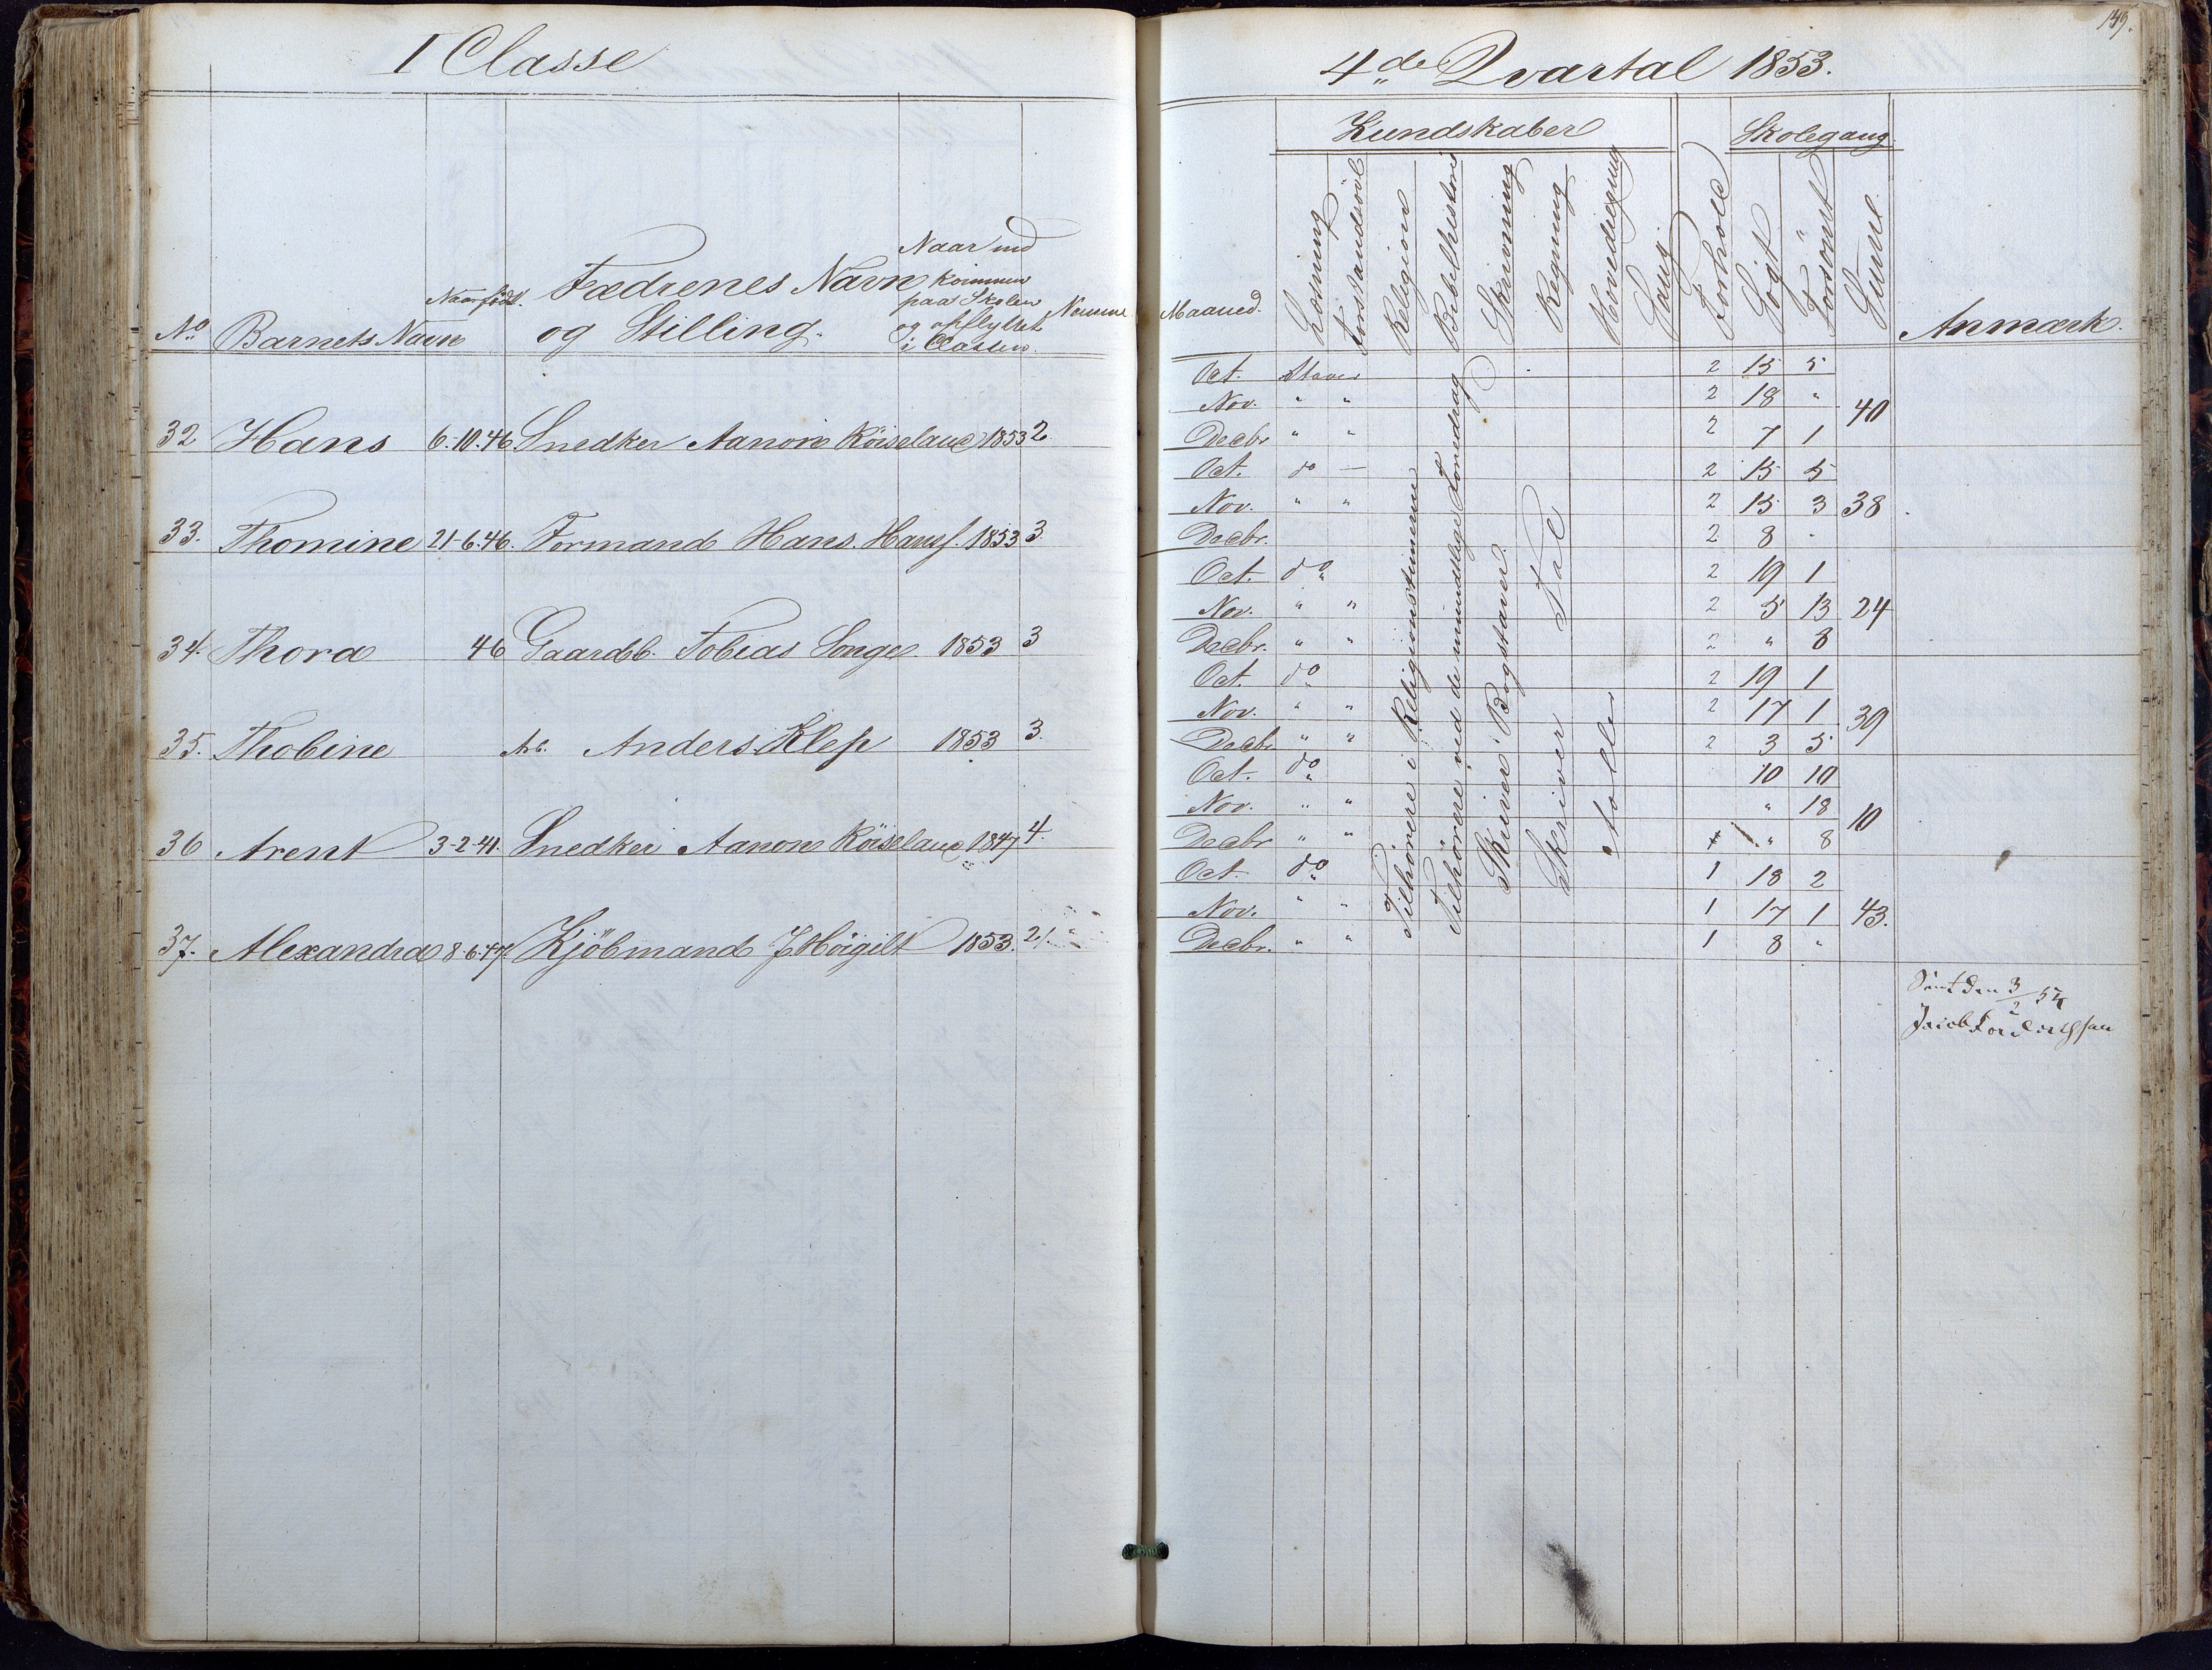 I Classe
No Barnets Navn Naar født. Fædrenes Navn og Stilling. Naar ind kommen paa Skolen og opflyttet i Classen. Numme
32 Hans 6-10-46 Snedker Aanon 1853 2
33. Thomine 21-6-46. Formand Hans Hansf. 1853 3
34. Thora 46 Gaardb. Tobias Songe 1853 3
35. Thobine Arb. Anders Klep 1853 3.
36 Arent 3-2-41. Snedker Aanon 1847 4.
37. Alexandra 8-6-47 Kjöbmand 1853. 21.
149.
4de Qvartal 1853.
Kundskaber Skolegang
Maaned. Læsning Forstandsövl Religion Bibelhistorie Skrivning Regning Hovedregning Sang Forhold Sögt Forsömt Sum. Anmærk.
Oct. Staver 2 15 5
Nov. " " 2 18 " 40
Decbr " " 2 7 1
Oct. do — 2 15 5
Nov. " " 2 15 3 38
Decbr. 2 8 "
Oct. do 2 19 1
Nov. " " 2 5 13 24
Decbr. " " 2 " 8
Oct. do 2 19 1
Nov. " " 2 17 1 39
Decbr. " " 2 3 5
Oct. do 10 10
Nov. " " " 18 10
Decbr " " " 8
Oct. do 1 18 2
Nov. " " 1 17 1 43.
Decbr. " " 1 8 "
Tilhörere i Religionstimerne
Tilhörere ved de mundtlige Foredrag
Skriver Bogstaver.
Skriver Tal
den 3/2 54
Jacob